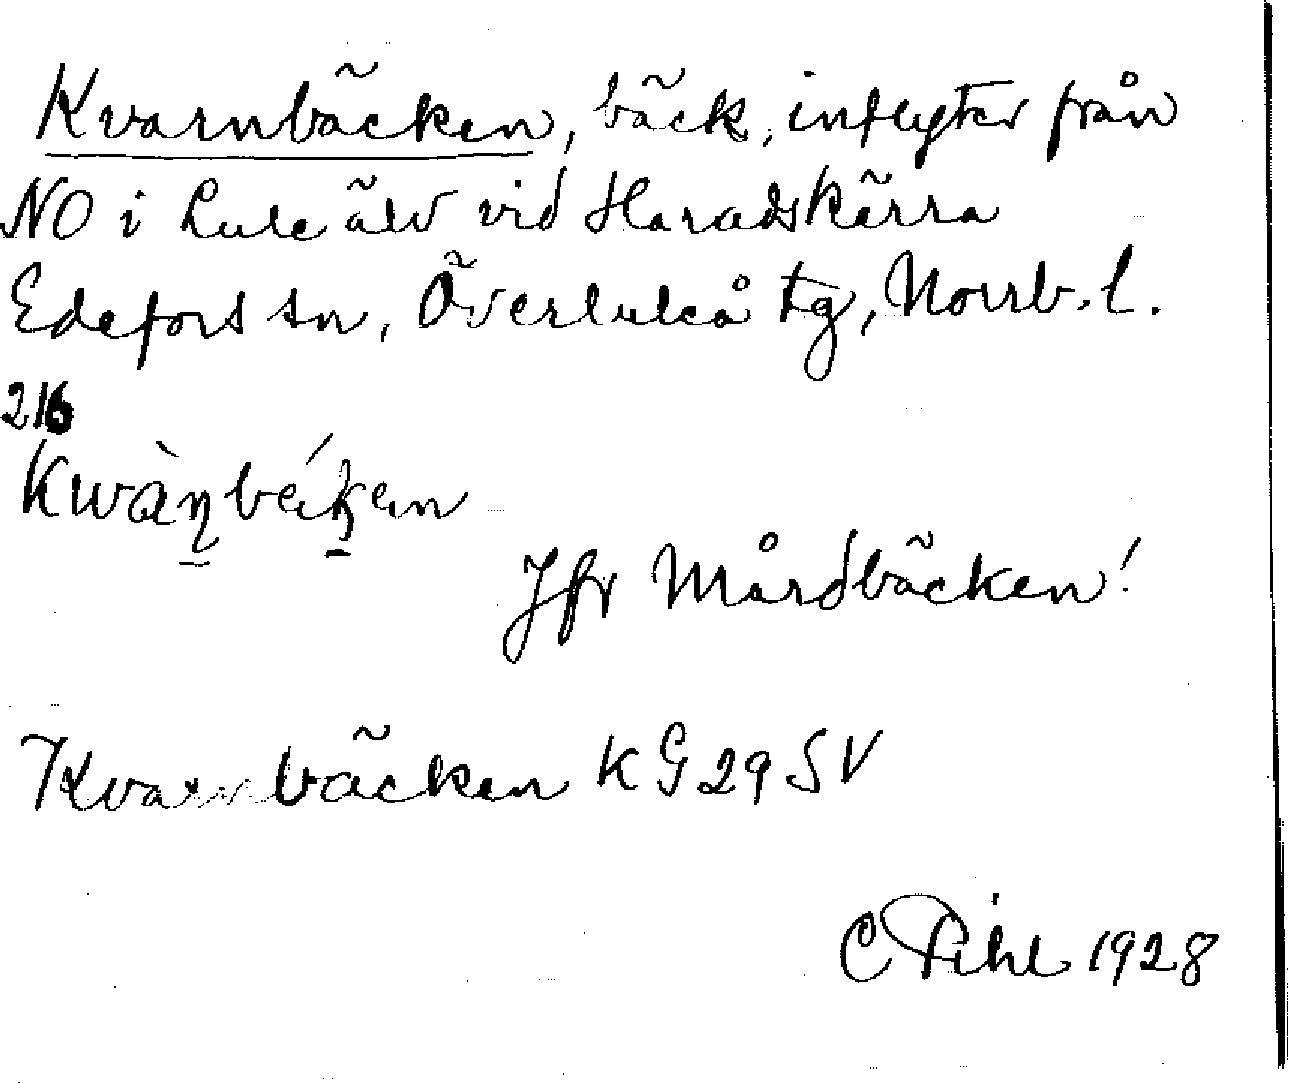 Kvarnbäcken, bäck, inflyter från
NO i Lule älv vid Haradskärra
Edefors sn, Överluleå tg, Norrb. l.
216
Jfr Mårdbäcken!
Kvarnbäcken KG29SV
C Pihl 1928